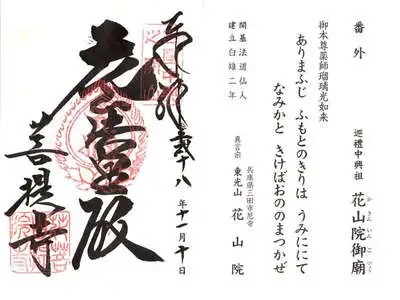 番外
巡禮中興祖 花山院御廟
かざんいんごびょう
御本尊薬師瑠璃光如来
ありまふじ ふもとのきりは うみににて
なみかと きけばおののまつかぜ
開基法道仙人
建立白雉二年
兵庫県三田市尼寺
真言宗 東光山 花山院
奉拝
十八年十一月十日
菩提寺